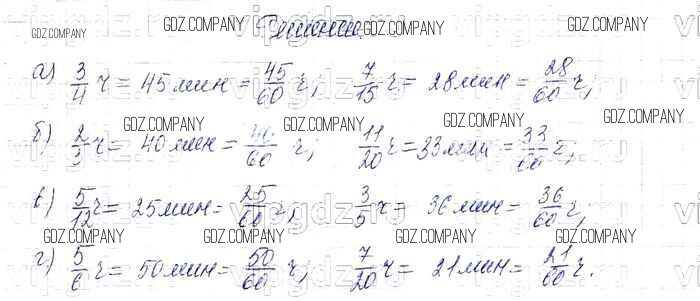 Решение.
а) 3/4 ч = 45 мин = 45/60 ч, 7/15 ч = 28 мин = 28/60 ч;
б) 2/3 ч = 40 мин = 40/60 ч; 11/20 ч = 33 мин = 33/60 ч;
в) 5/12 ч = 25 мин = 25/60 ч; 3/5 ч = 36 мин = 36/60 ч;
г) 5/6 ч = 50 мин = 50/60 ч; 7/20 ч = 21 мин = 21/60 ч.
GDZ.COMPANY GDZ.COMPANY GDZ.COMPANY GDZ.COMPANY
GDZ.COMPANY GDZ.COMPANY GDZ.COMPANY
GDZ.COMPANY GDZ.COMPANY GDZ.COMPANY GDZ.COMPANY
GDZ.COMPANY GDZ.COMPANY GDZ.COMPANY GDZ.COMPANY